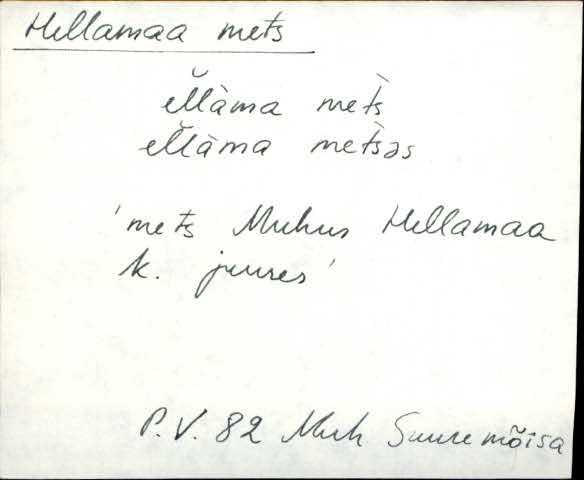 Hellamaa mets
ĕl̆làma met̀s
ĕl̆làma met̀səs
'mets Muhus Hellamaa
k. juures'
P.V. 82 Muh Suuremõisa